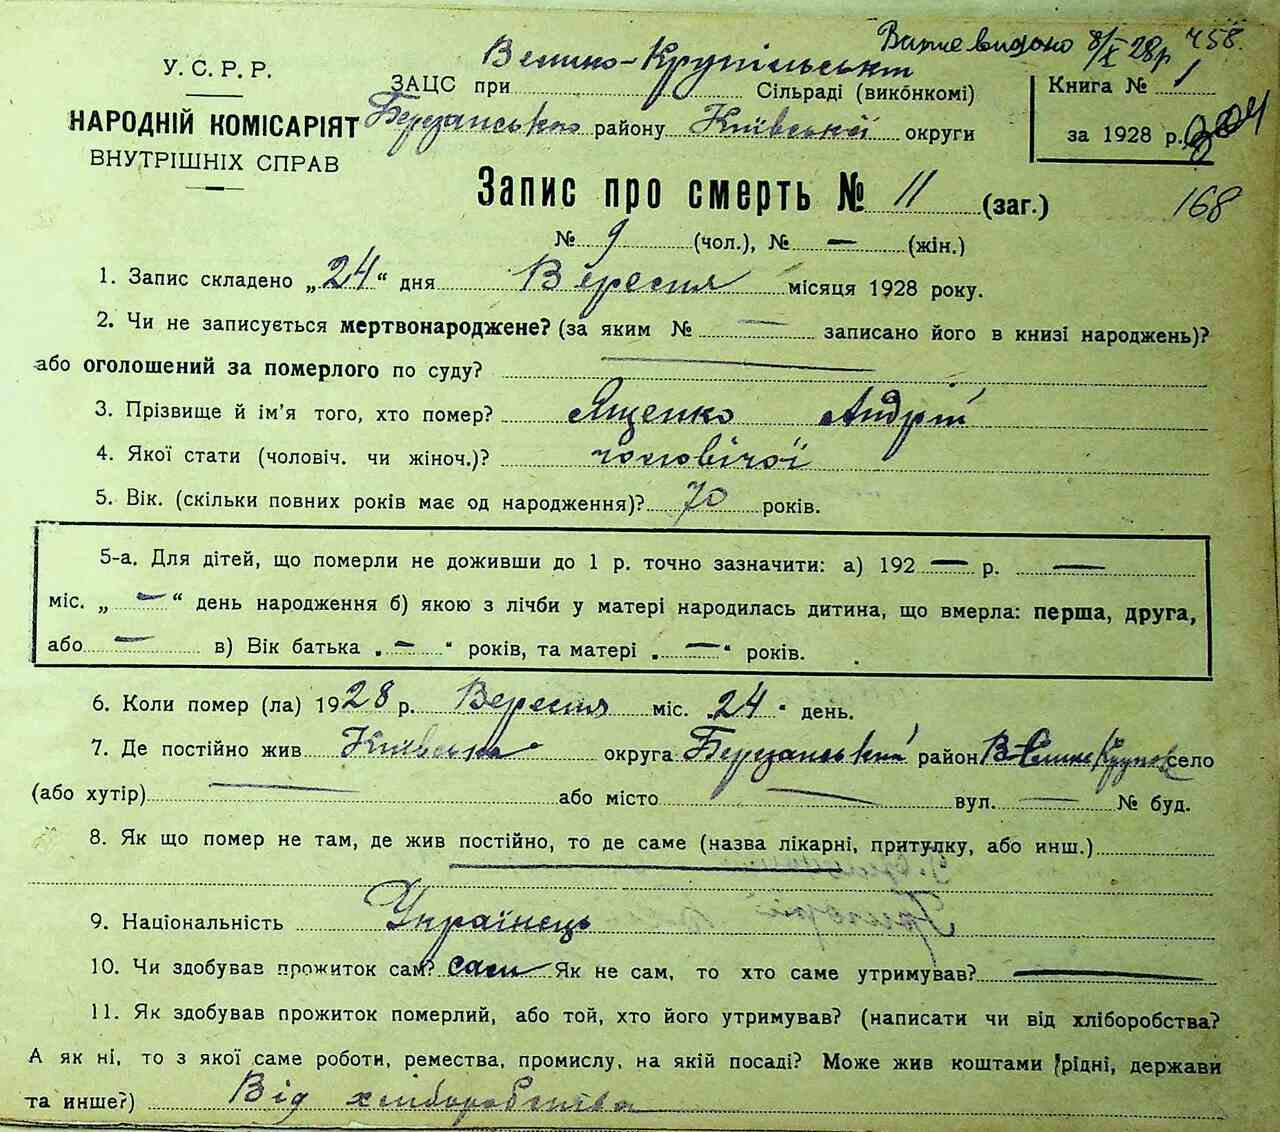 видано 8/X 28р 458.
У. С. Р. Р.
НАРОДНІЙ КОМІСАРІЯТ
ВНУТРІШНІХ СПРАВ
ЗАЦС при Велико-Крупільські Сільраді (виконкомі)
Березанського району Київської округи
Книга № 1
за 1928 р.
304
168
Запис про смерть № 11 (заг.)
№ 9 (чол.), № — (жін.)
1. Запис складено „24“ дня Вересня місяця 1928 року.
2. Чи не записується мертвонароджене? (за яким № — записано його в книзі народжень)?
або оголошений за померлого по суду? —
3. Прізвище й ім'я того, хто помер? Ященко Андрій
4. Якої стати (чоловіч. чи жіноч.)? чоловічої
5. Вік. (скільки повних років має од народження)? 70 років.
5-а. Для дітей, що померли не доживши до 1 р. точно зазначити: а) 192 — р. —
міс. „ — “ день народження б) якою з лічби у матері народилась дитина, що вмерла: перша, друга,
або — в) Вік батька „ — “ років, та матері „ — “ років.
6. Коли помер (ла) 1928 р. Вересня міс. „24“ день.
7. Де постійно жив Київська округа Березанський район В-Крупол село
(або хутір) — або місто — вул. — № буд.
8. Як що помер не там, де жив постійно, то де саме (назва лікарні, притулку, або инш.)
—
9. Національність Українець
10. Чи здобував прожиток сам? сам Як не сам, то хто саме утримував? —
11. Як здобував прожиток померлий, або той, хто його утримував? (написати чи від хліборобства?
А як ні, то з якої саме роботи, ремества, промислу, на якій посаді? Може жив коштами рідні, держави
та инше?) Від хліборобства